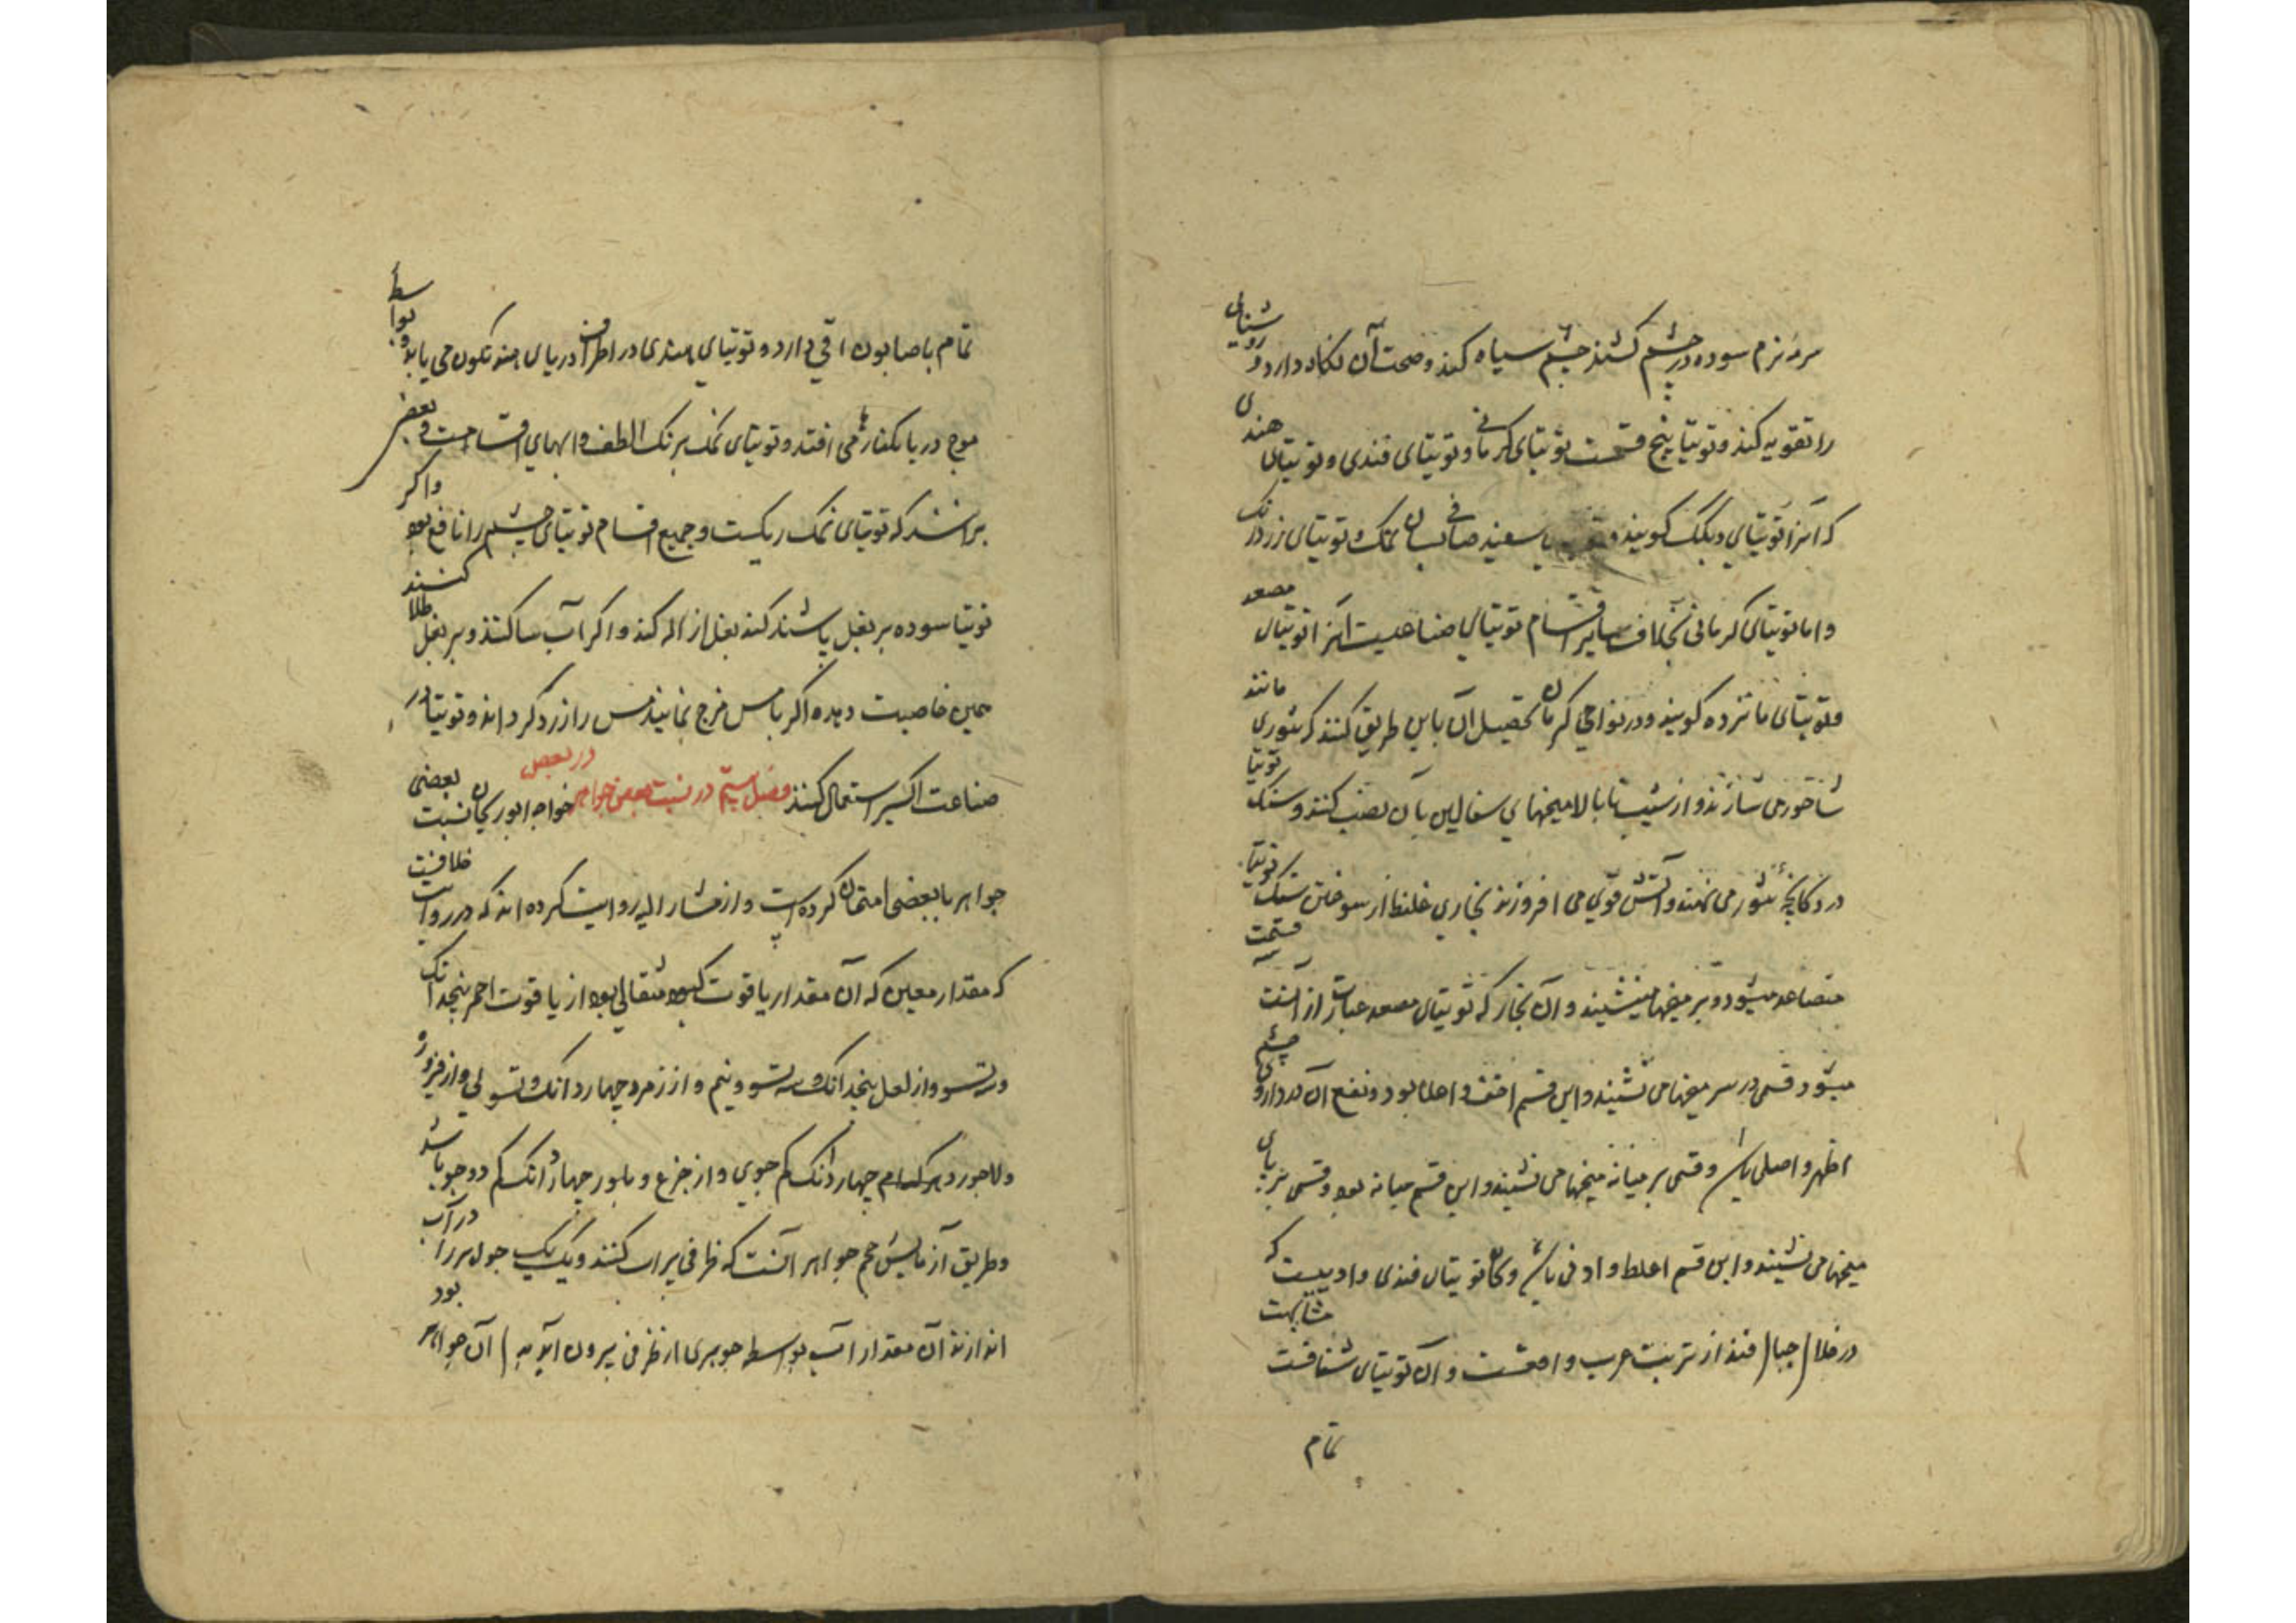 سرمه نرم سوده در چشم کشند چشم سیاه کند و صحت آن نگاه دارد و روشنایی
را تقویه کند و توتیا پنج قسمت توتیای کرمانی و توتیای قندی و توتیای هندی
که آنرا توتیای گویند و سفید صافی نمک توتیای زرد رنک
و اما توتیای کرمانی بخلاف سایر اقسام توتیای صناعیست آنرا توتیای مصعد
و توتیای گویند و در نواحی کرمان تحصیل آن باین طریق کنند که تنوری مانند
شاخور می سازند و از شیب تا بالا میخهای سفالین بآن نصب کنند و سنک توتیا
در دکانچهٔ تنور می نهند و آتش قوی می افروزند بخاری غلیظ از سوختن سنک توتیا
متصاعد میشود و بر میخها می نشیند و آن بخار که توتیای مصعد عبارت از آنست سه قسمت
میشود قسمی در سر میخها می نشیند و این قسم اخف و اعلا بود و نفع آن در داروی چشم
اظهر و اصلی باشد و قسمی بر میانه میخها می نشیند و این قسم میانه بود و قسمی بر پای
میخها می نشیند و این قسم اغلظ و ادنی باشد و توتیای قندی که
در خلال جبال قند از تربت عرب و آن توتیای شفافست مشابهت
تمام
تمام با صابون دارد و توتیای هندی در اطراف دریای هند تکون می یابد و بواسطهٔ
موج دریا بکنارها می افتد و توتیای نمک برنک الطف و ابهای اقسامست و بعضی
برانند که توتیای نمک ریکست و جمیع اقسام توتیای چشم را نافع بود و اکر
توتیا سوده بر بغل پاشند کند بغل ازاله کند و اکر آب سا کنند و بر بغل طلا کنند
همین خاصیت دهد و اکر با مس مزج نمایند مس را زرد کرداند و توتیا در
صناعت اکسیر استعمال کنند فصل سیم در نسبت بعضی جواهر در بعضی خواجه ابوریحان نسبت بعضی
جواهر با بعضی امتحان کرده است و از مشار الیه روایت کرده اند که در روایت خلافیست
که مقدار معین که آن مقدار یاقوت کبود مثقالی بود از یاقوت احمر پنجدانک
و سه تسو و از لعل پنجدانک و سه تسو و نیم و از زمرد چهار دانک و تسوئی و از فیروزه
و لاجورد هر کدام چهار دانک کم جوی و از جزع و بلور چهار دانک کم دو جو باشد
و طریق آزمایش حجم جواهر آنست که ظرفی پر آب کنند و یک یک جوهر را در آب
اندازند آن مقدار آب بواسطه جوهری از ظرف بیرون آید آن جواهر بود